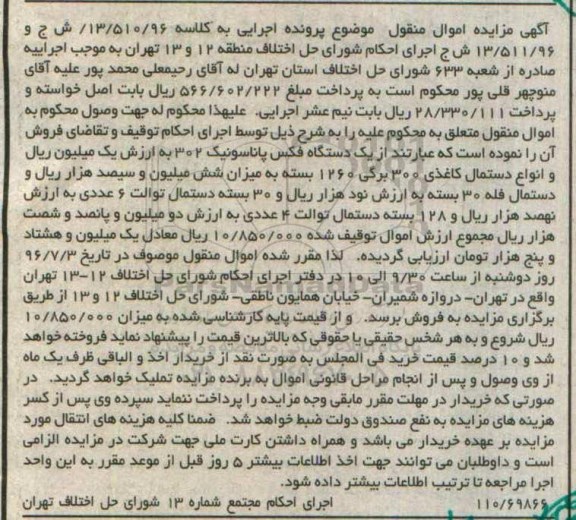 آگهی مزایده اموال منقول موضوع پرونده اجرایی به کلاسه ۱۳/۵۱۰/۹۶/ ش ج و
۱۳/۵۱۱/۹۶ ش ج اجرای احکام شورای حل اختلاف منطقه ۱۲ و ۱۳ تهران به موجب اجراییه
صادره از شعبه ۶۳۳ شورای حل اختلاف استان تهران له آقای رحیمعلی محمد پور علیه آقای
منوچهر قلی پور محکوم است به پرداخت مبلغ ۵۶۶/۶۰۲/۲۲۲ ریال بابت اصل خواسته و
پرداخت ۲۸/۳۳۰/۱۱۱ ریال بابت نیم عشر اجرایی. علیهذا محکوم له جهت وصول محکوم به
اموال منقول متعلق به محکوم علیه را به شرح ذیل توسط اجرای احکام توقیف و تقاضای فروش
آن را نموده است که عبارتند از یک دستگاه فکس پاناسونیک ۳۰۲ به ارزش یک میلیون ریال
و انواع دستمال کاغذی ۳۰۰ برگی ۱۲۶۰ بسته به میزان شش میلیون و سیصد هزار ریال و
دستمال فله ۳۰ بسته به ارزش نود هزار ریال و ۳۰ بسته دستمال توالت ۶ عددی به ارزش
نهصد هزار ریال و ۱۲۸ بسته دستمال توالت ۴ عددی به ارزش دو میلیون و پانصد و شصت
هزار ریال مجموع ارزش اموال توقیف شده ۱۰/۸۵۰/۰۰۰ ریال معادل یک میلیون و هشتاد
و پنج هزار تومان ارزیابی گردیده. لذا مقرر شده اموال منقول موصوف در تاریخ ۹۶/۷/۳
روز دوشنبه از ساعت ۹/۳۰ الی ۱۰ در دفتر اجرای احکام شورای حل اختلاف ۱۲-۱۳ تهران
واقع در تهران- دروازه شمیران- خیابان همایون ناطقی- شورای حل اختلاف ۱۲ و ۱۳ از طریق
برگزاری مزایده به فروش برسد. و از قیمت پایه کارشناسی شده به میزان ۱۰/۸۵۰/۰۰۰
ریال شروع و به هر شخص حقیقی یا حقوقی که بالاترین قیمت را پیشنهاد نماید فروخته خواهد
شد و ۱۰ درصد قیمت خرید فی المجلس به صورت نقد از خریدار اخذ و الباقی ظرف یک ماه
از وی وصول و پس از انجام مراحل قانونی اموال به برنده مزایده تملیک خواهد گردید. در
صورتی که خریدار در مهلت مقرر مابقی وجه مزایده را پرداخت ننماید سپرده وی پس از کسر
هزینه های مزایده به نفع صندوق دولت ضبط خواهد شد. ضمنا کلیه هزینه های انتقال مورد
مزایده بر عهده خریدار می باشد و همراه داشتن کارت ملی جهت شرکت در مزایده الزامی
است و داوطلبان می توانند جهت اخذ اطلاعات بیشتر ۵ روز قبل از موعد مقرر به این واحد
اجرا مراجعه تا ترتیب اطلاعات بیشتر داده شود.
۱۱۰/۶۹۸۶۶ اجرای احکام مجتمع شماره ۱۳ شورای حل اختلاف تهران